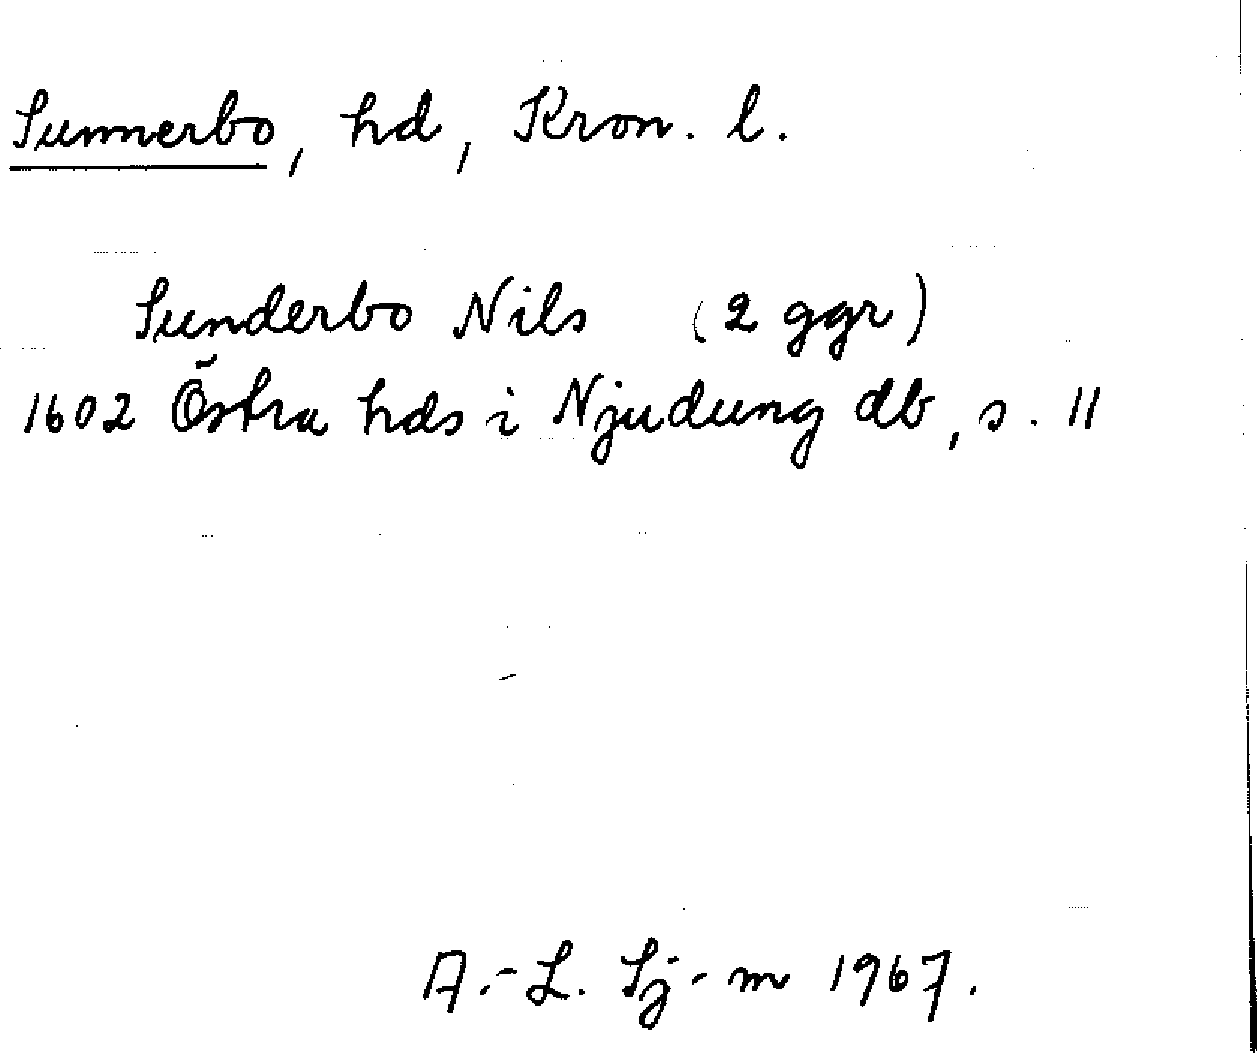 Sunnerbo, hd, Kron. l.
Sunderbo Nils (2 ggr)
1602 Östra hds i Njudung db, s. 11
A.-L. Sj-m 1967.